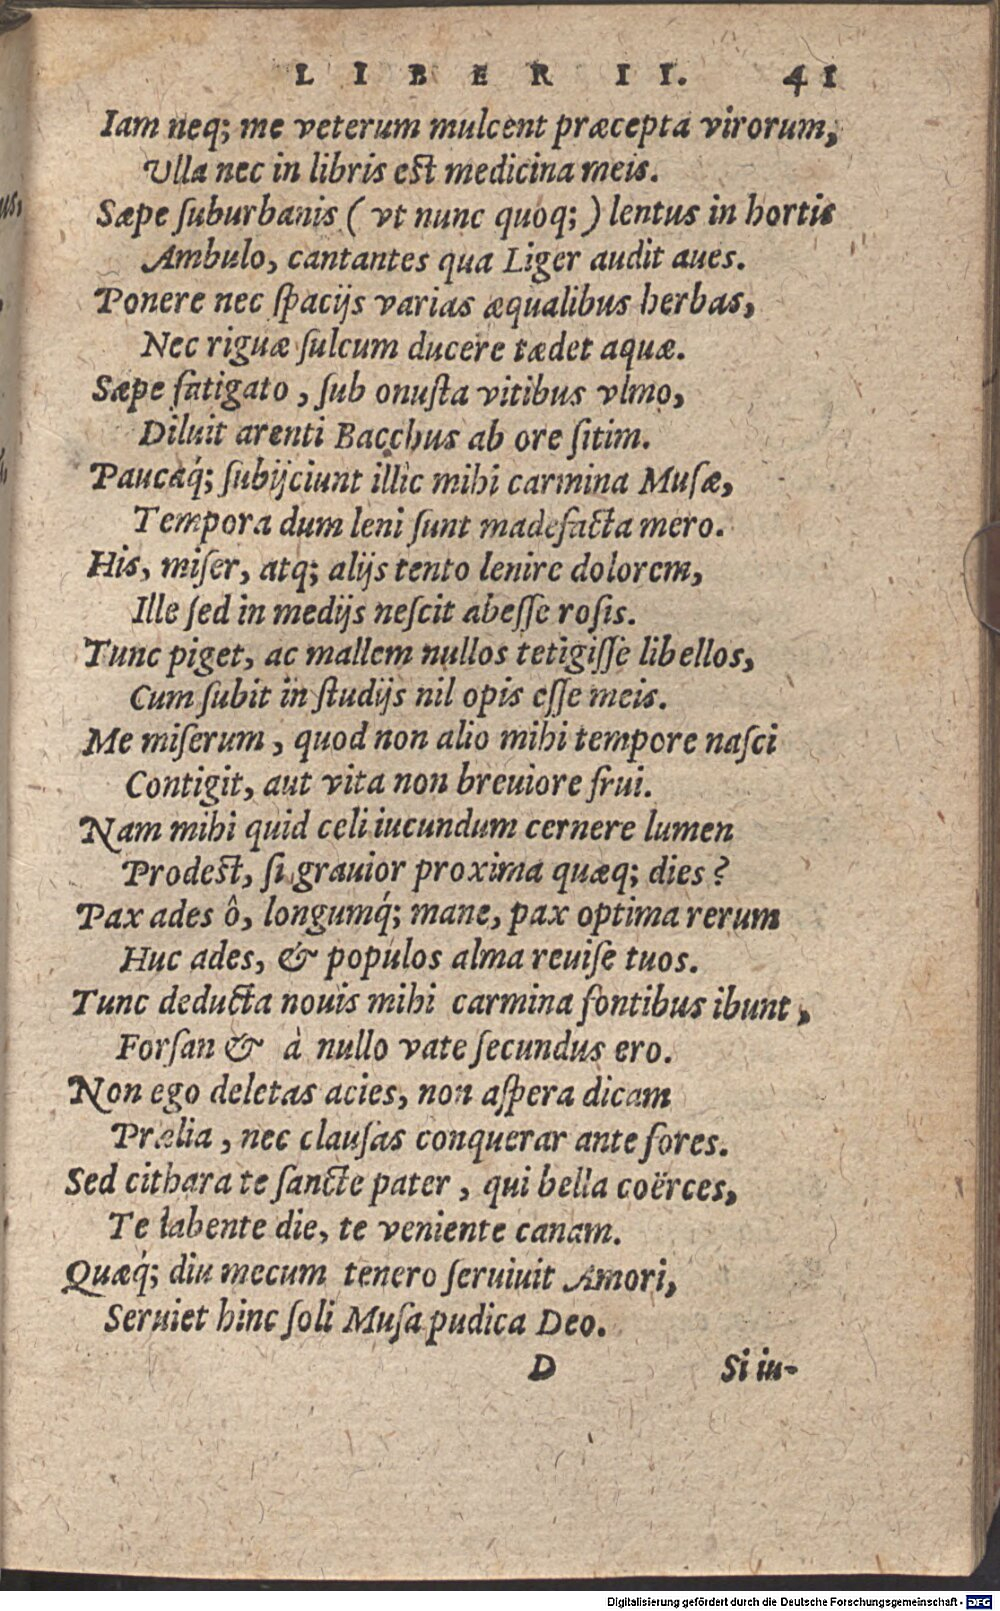 LIBER II. 41
Iam neq; me veterum mulcent præcepta virorum,
Vlla nec in libris est medicina meis.
Sæpe ſuburbanis ( vt nunc quoq; ) lentus in hortis
Ambulo, cantantes qua Liger audit aues.
Ponere nec ſpacijs varias æqualibus herbas,
Nec riguæ ſulcum ducere tædet aquæ.
Sæpe fatigato , ſub onuſta vitibus vlmo,
Diluit arenti Bacchus ab ore ſitim.
Paucaq́; ſubijciunt illic mihi carmina Muſæ,
Tempora dum leni ſunt madefacta mero.
His, miſer, atq; alijs tento lenire dolorem,
Ille ſed in medijs neſcit abeſſe roſis.
Tunc piget, ac mallem nullos tetigiſſe libellos,
Cum ſubit in ſtudijs nil opis eſſe meis.
Me miſerum , quod non alio mihi tempore naſci
Contigit, aut vita non breuiore frui.
Nam mihi quid celi iucundum cernere lumen
Prodest, ſi grauior proxima quæq; dies ?
Pax ades ô, longumq́; mane, pax optima rerum
Huc ades, & populos alma reuiſe tuos.
Tunc deducta nouis mihi carmina fontibus ibunt ,
Forſan & à nullo vate ſecundus ero.
Non ego deletas acies, non aſpera dicam
Prælia , nec clauſas conquerar ante fores.
Sed cithara te ſancte pater , qui bella coërces,
Te labente die, te veniente canam.
Quæq́; diu mecum tenero ſeruiuit Amori,
Seruiet hinc ſoli Muſa pudica Deo.
D Si iu-
us,
Digitalisierung gefördert durch die Deutsche Forschungsgemeinschaft - DFG